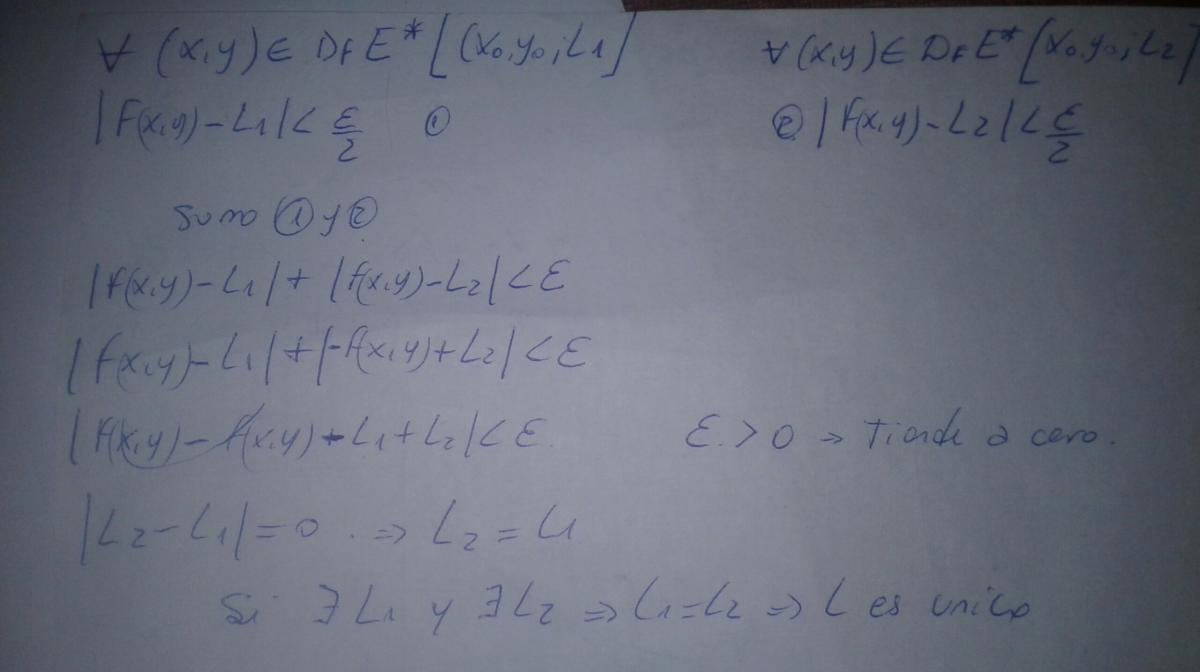 ∀ (x,y) ∈ Df E* [(x₀,y₀; L1]
∀ (x,y) ∈ Df E* [x₀,y₀; L2]
|F(x,y) - L1| < ε/2 ①
② |F(x,y) - L2| < ε/2
Sumo ① y ②
|f(x,y) - L1| + |f(x,y) - L2| < ε
|f(x,y) - L1| + |-f(x,y) + L2| < ε
|f(x,y) - f(x,y) - L1 + L2| < ε.
ε > 0 → Tiende a cero.
|L2 - L1| = 0 . ⇒ L2 = L1
Si ∃ L1 y ∃ L2 ⇒ L1 = L2 ⇒ L es unico